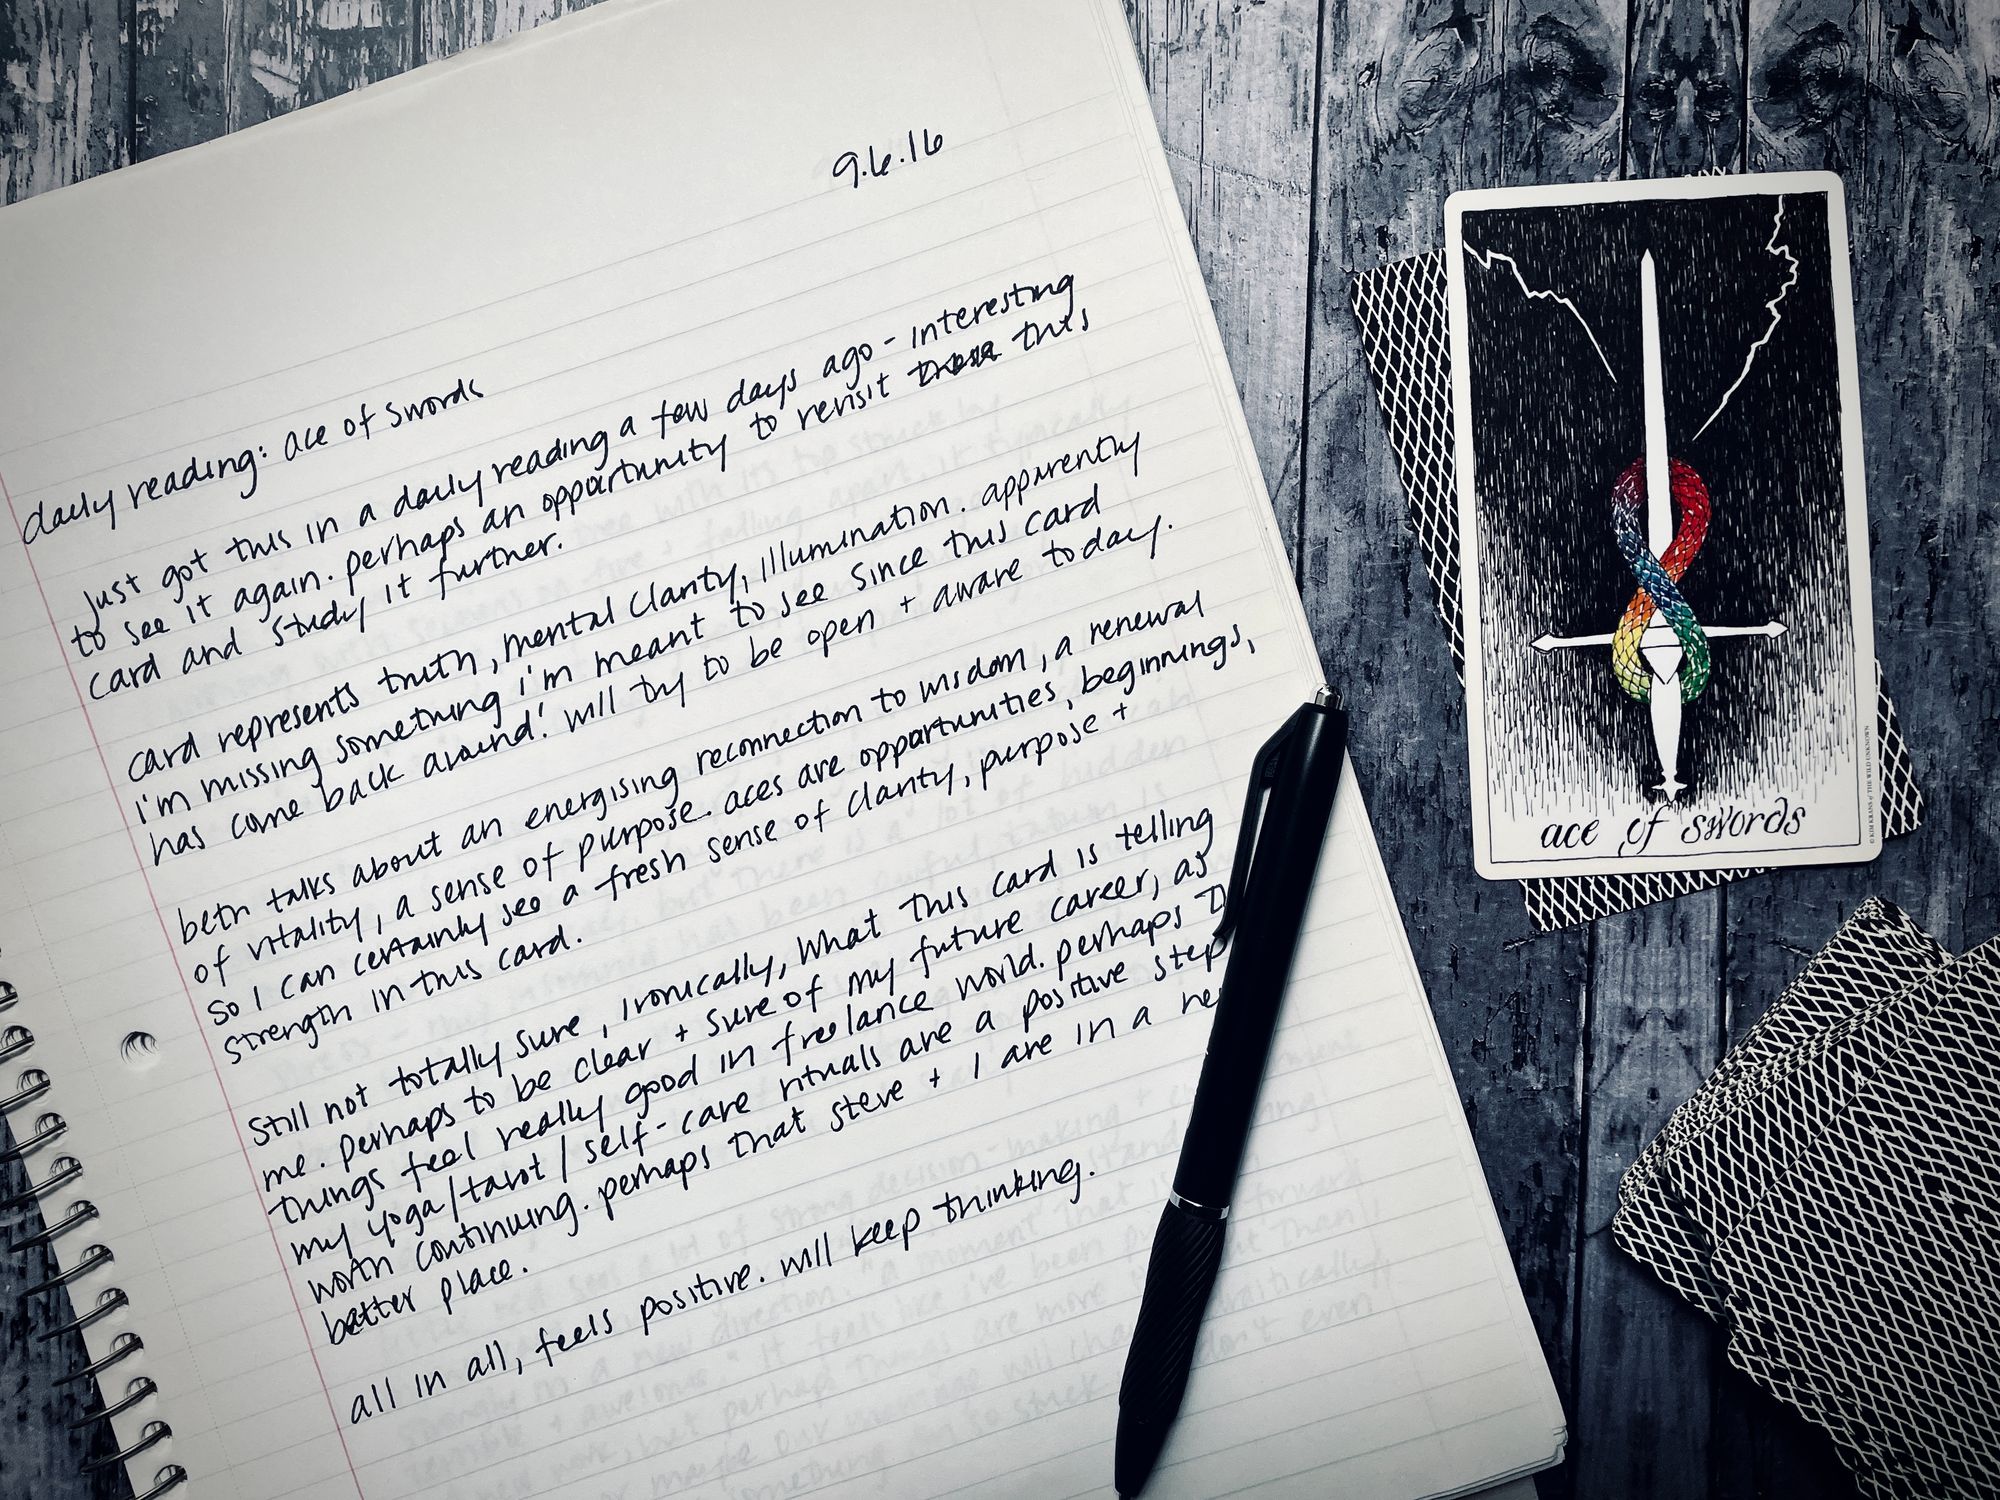 9.6.16
daily reading: ace of swords
just got this in a daily reading a few days ago - interesting
to see it again. perhaps an opportunity to revisit this
card and study it further.
card represents truth, mental clarity, illumination. apparently
i'm missing something i'm meant to see since this card
has come back around! will try to be open + aware today.
beth talks about an energising reconnection to wisdom, a renewal
of vitality, a sense of purpose. aces are opportunities, beginnings,
so I can certainly see a fresh sense of clarity, purpose +
strength in this card.
Still not totally sure, ironically, what this card is telling
me. perhaps to be clear + sure of my future career, as
things feel really good in freelance world. perhaps
my yoga/tarot/self-care rituals are a positive step
worth continuing. perhaps that steve + I are in a
better place.
all in all, feels positive. will keep thinking.
ace of swords
© KIM KRANS & THE WILD UNKNOWN